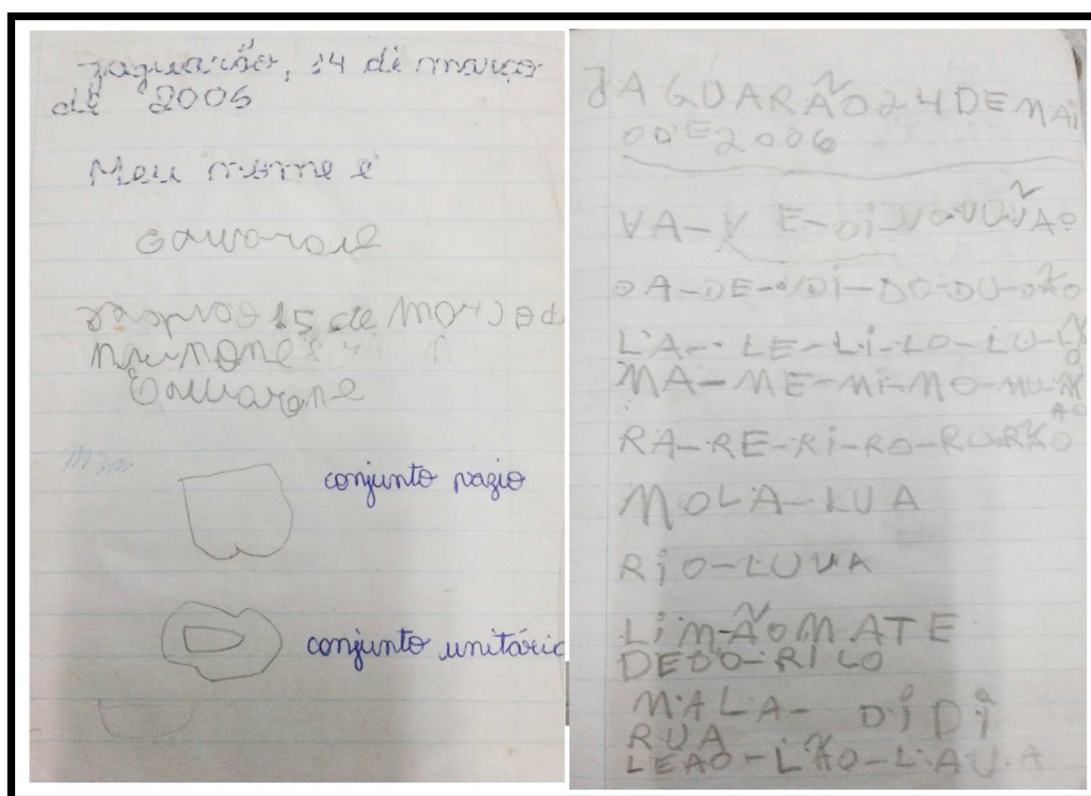 Jaguarão, 14 de março
de 2006
Meu nome é
15 de
conjunto vazio
conjunto unitário
JAGUARÃO 24 DE MAI
O DE 2006
VA-V E-Di-VO-VU-VÃO
DA-DE-Di-DO-DU-DÃO
LA-LE-Li-LO-LU-
MA-ME-Mi-MO-MU-M
ÃO
RA-RE-Ri-RO-RU-RÃO
MOLA-LUA
RiO-LUVA
LiMÃO MATE
DEDO-RILO
MALA- DiDi
RUA
LEÃO-LÃO-LAVA